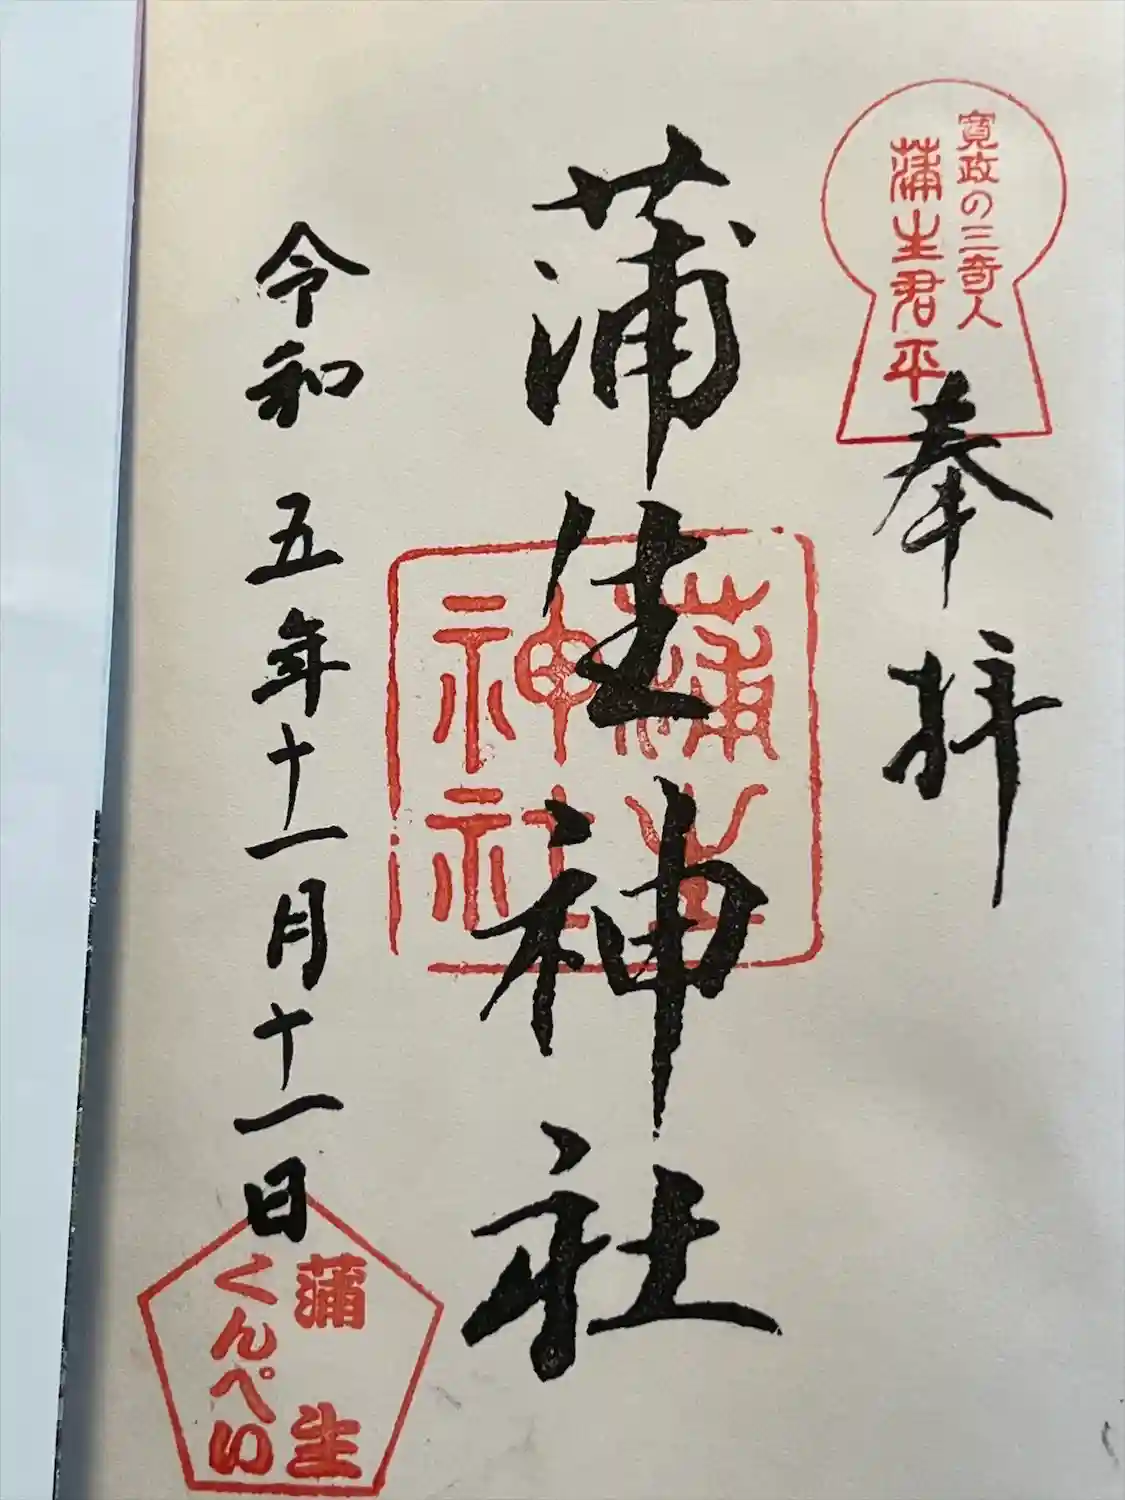 寛政の三奇人
蒲生君平
奉拝
蒲生神社
蒲生
神社
令和五年十一月十一日
蒲生
くんぺい